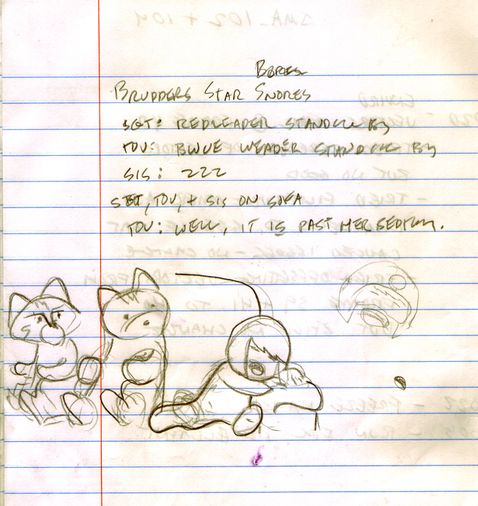 BORES
BRUDDERS STAR SNORES
SGT: REDLEADER STANDING BY
TOU: BWUE WEADER STANDING BY
SIS: ZZZ
SGT, TOU, + SIS ON SOFA
TOU: WELL, IT IS PAST HER BEDTIME.